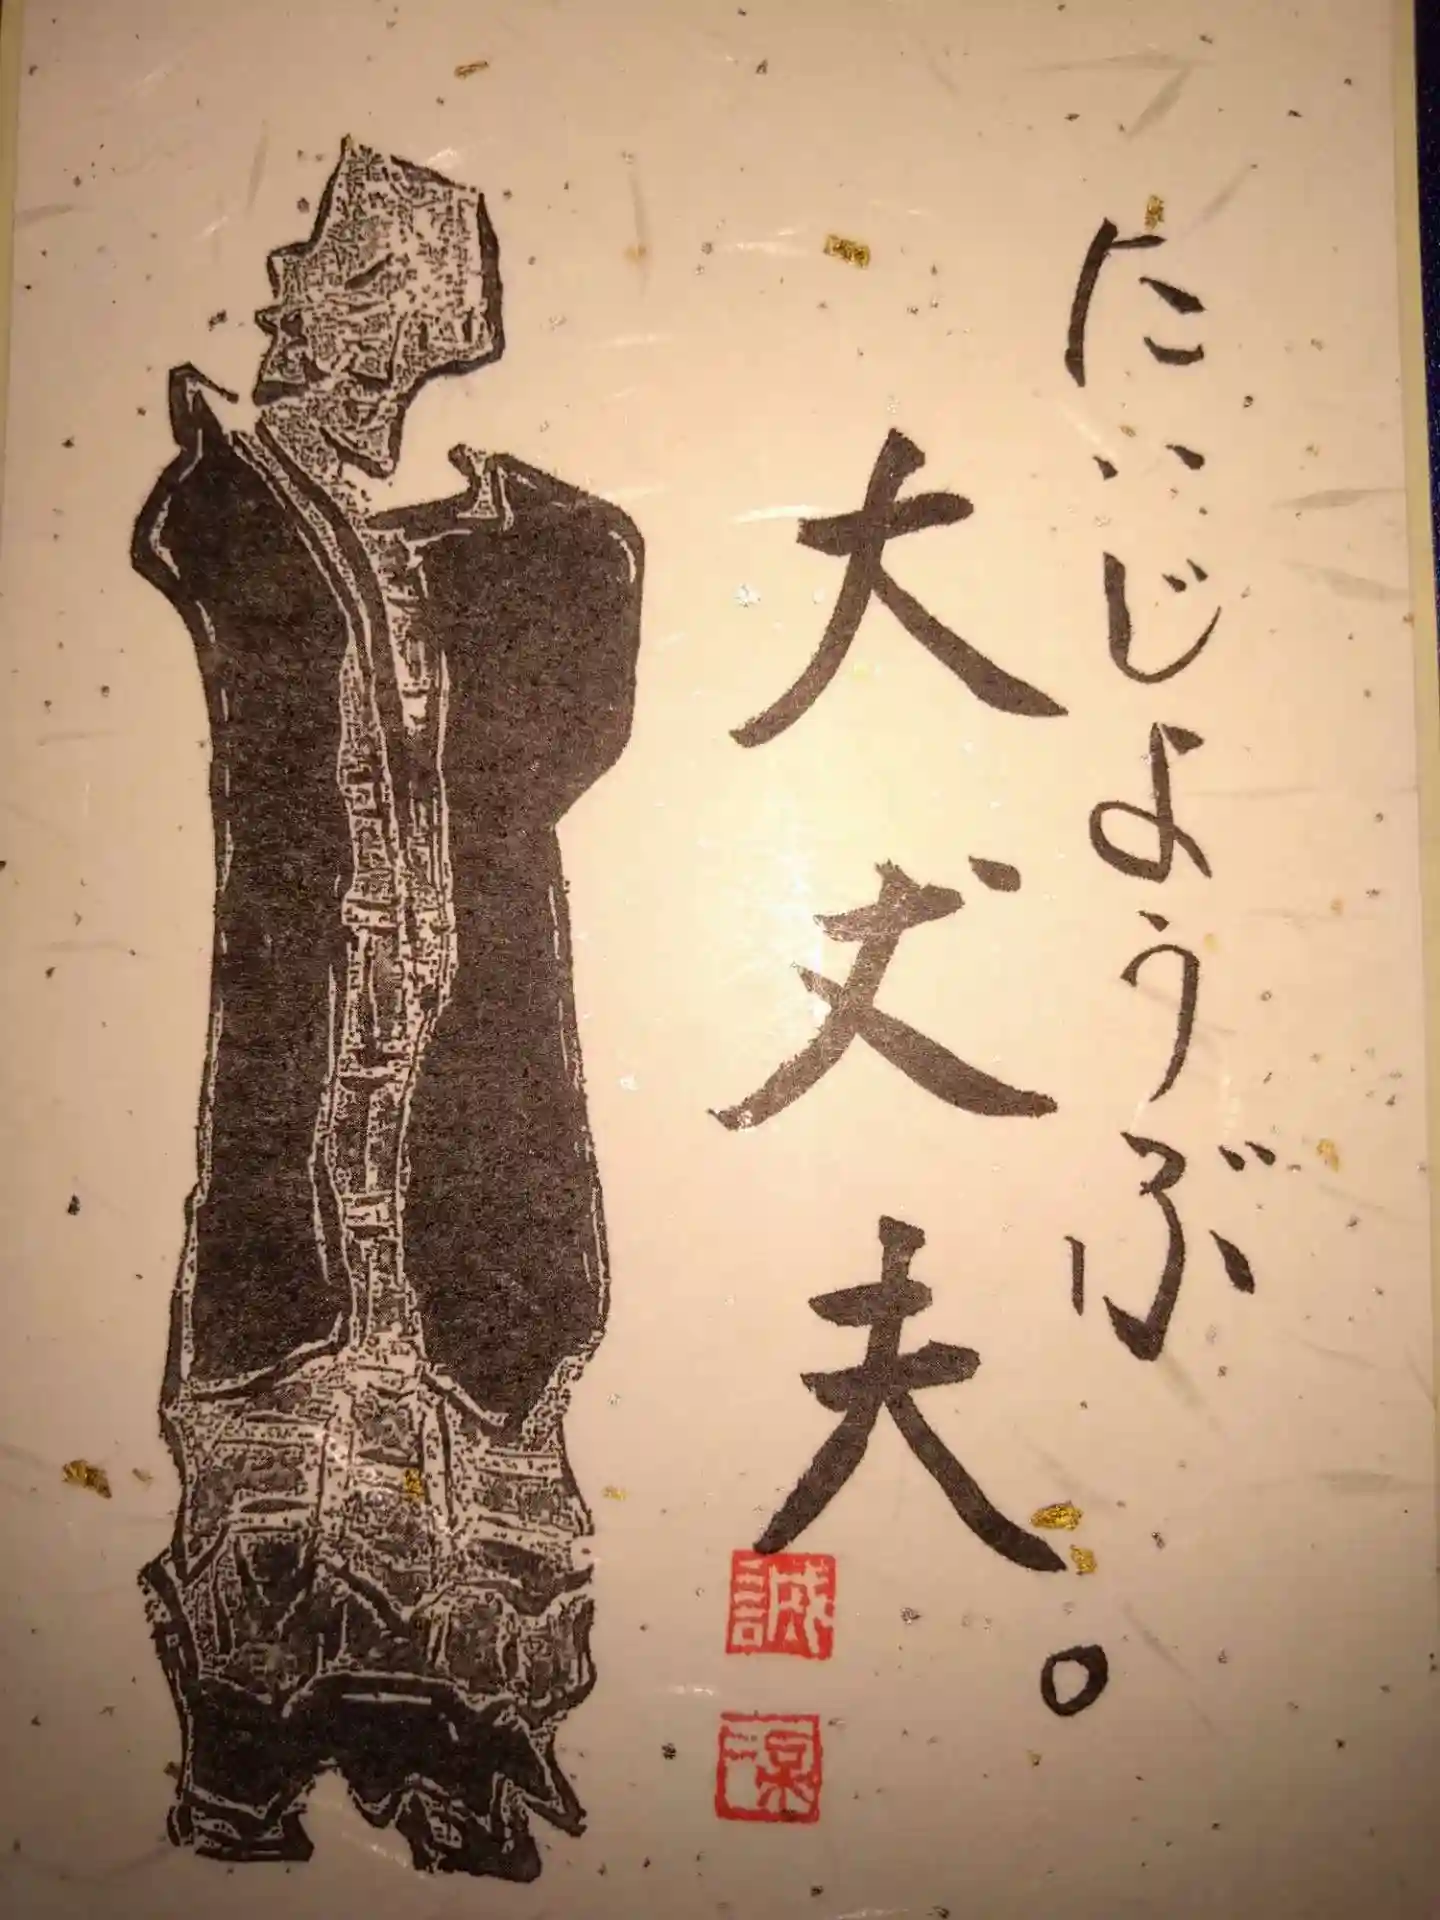 たいじょうぶ
大丈夫。
誠
諒